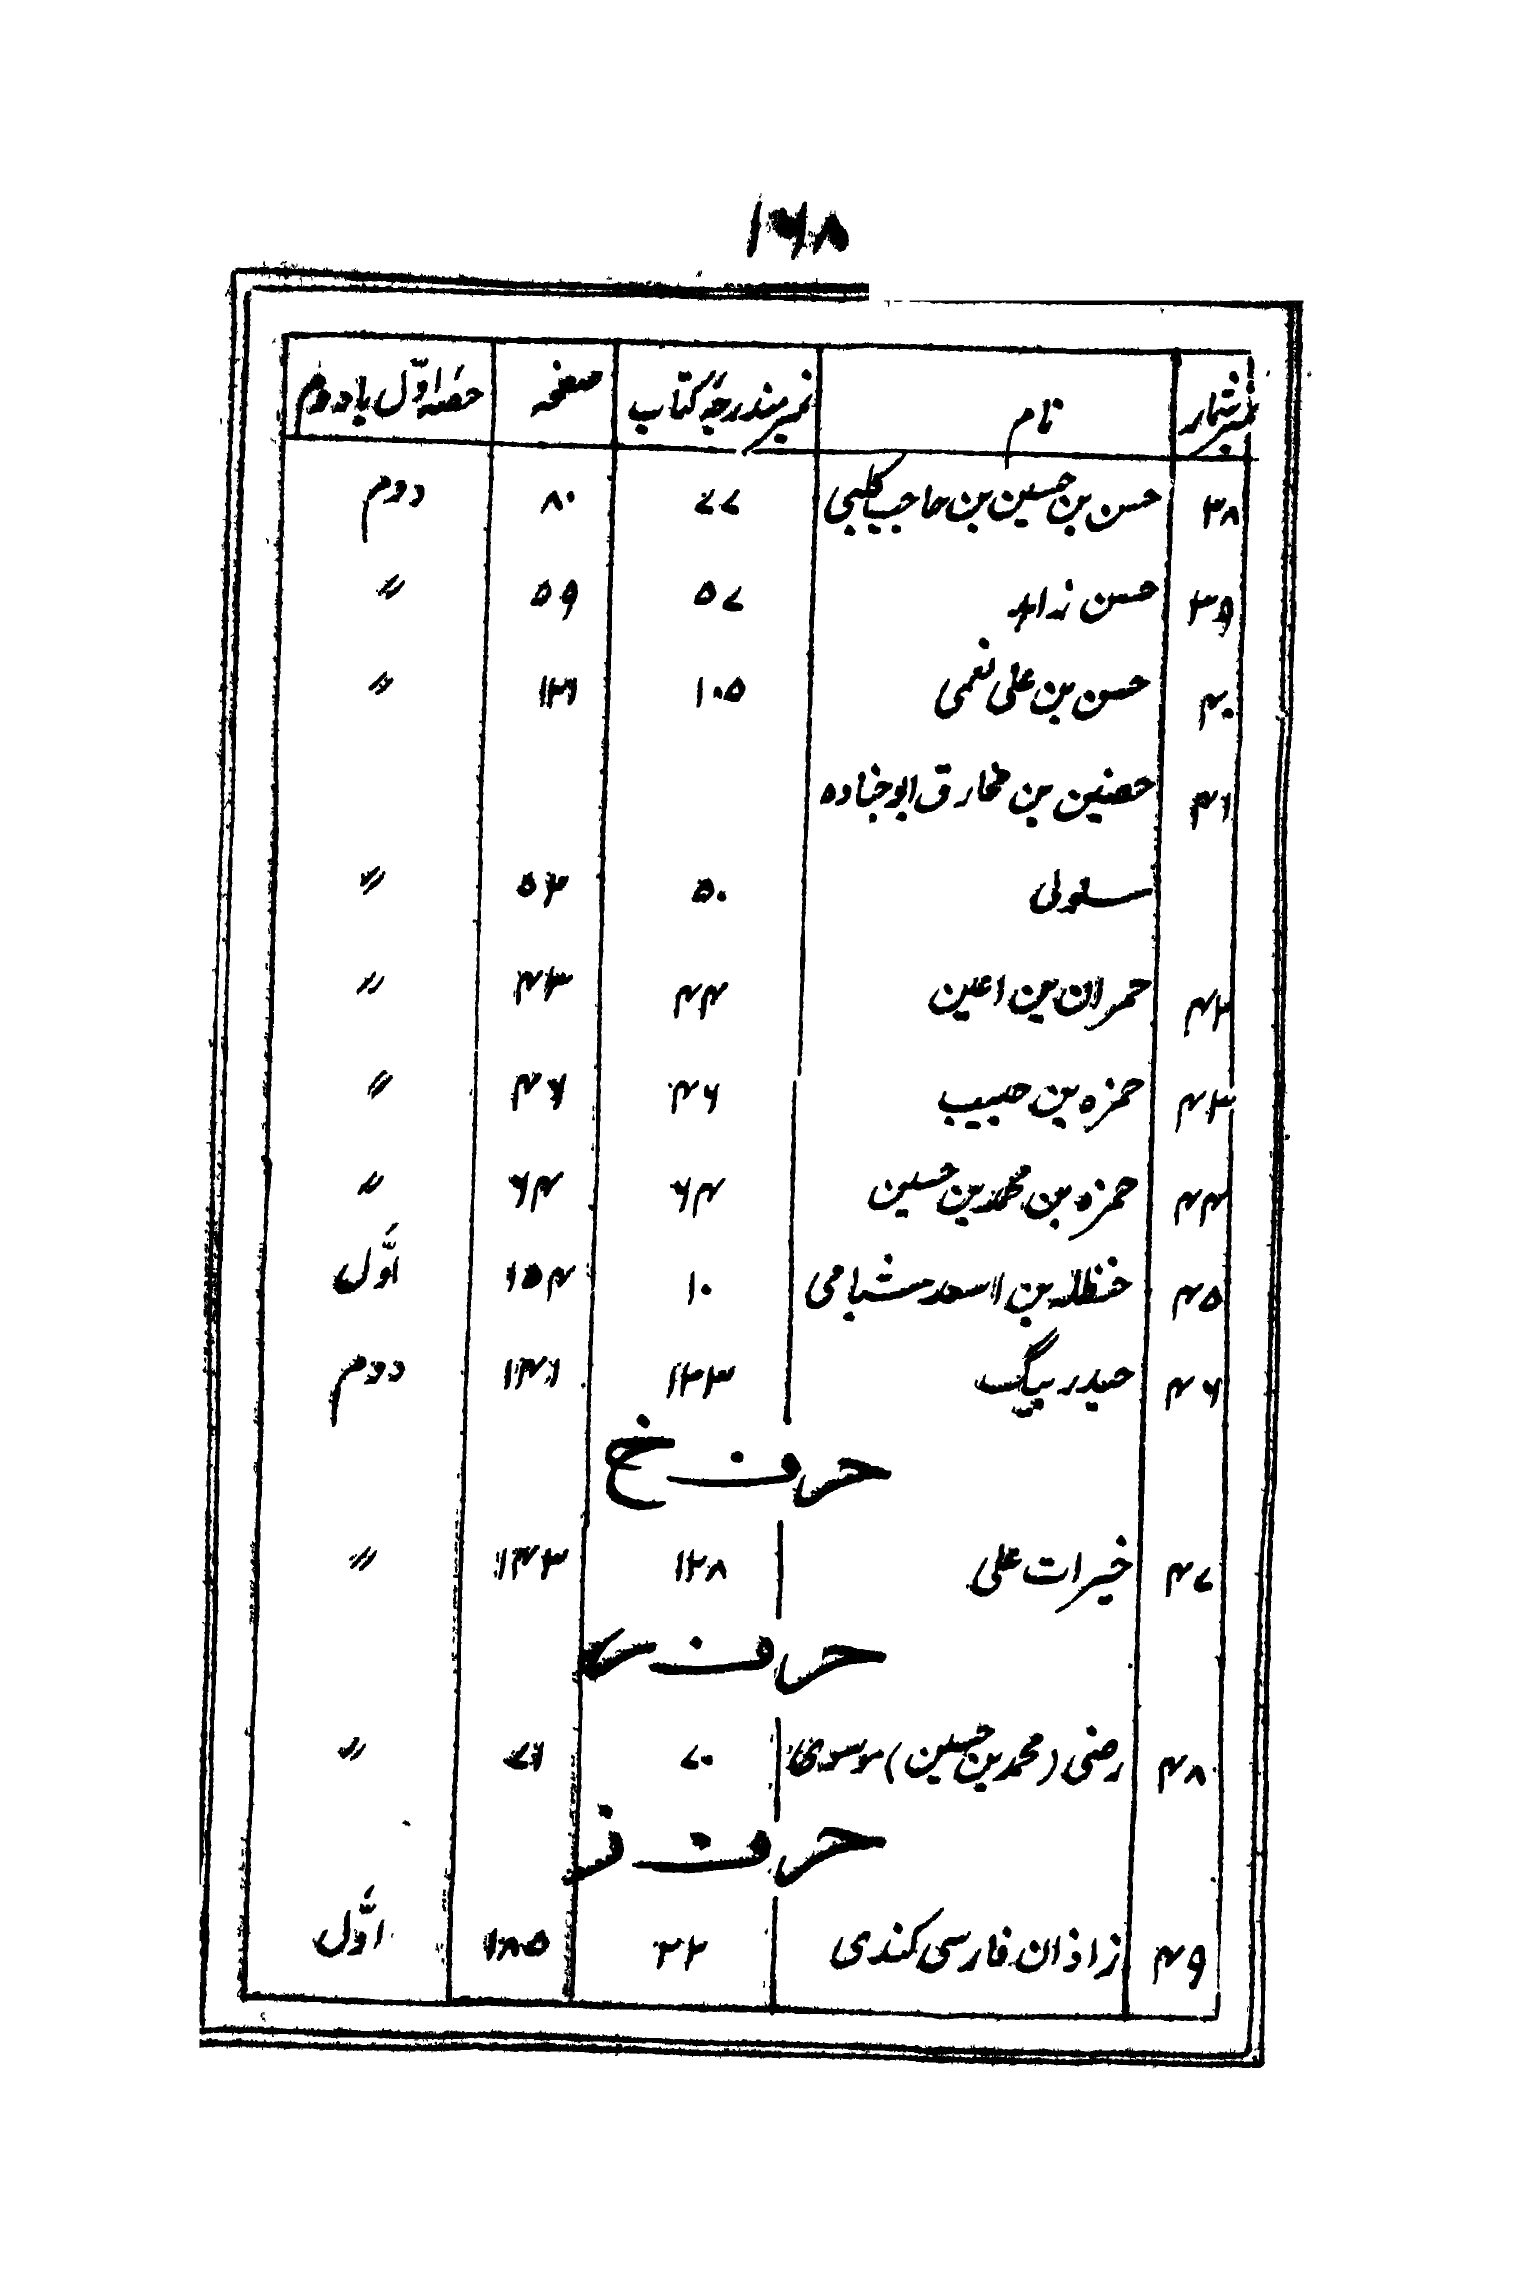 ۱۶۸
نمبر شمار نام نمبر مندرجہ کتاب صفحہ حصہ اوّل یا دوم
۳۸ حسن بن حسین بن حاجب کلبی ۷۷ ۸۰ دوم
۳۹ حسن زاہد ۵۷ ۵۹ 〃
۴۰ حسن بن علی نعمی ۱۰۵ ۱۲۱ 〃
۴۱ حصنین بن مخارق ابو جنادہ
سلولی ۵۰ ۵۳ 〃
۴۲ حمران بن اعین ۴۴ ۴۳ 〃
۴۳ حمزہ بن حبیب ۴۶ ۴۶ 〃
۴۴ حمزہ بن محمد بن حسین ۶۴ ۶۴ 〃
۴۵ حنظلہ بن اسعد شبامی ۱۰ ۱۵۴ اوّل
۴۶ حیدر بیگ ۱۲۳ ۱۴۱ دوم
حرف خ
۴۷ خیرات علی ۱۲۸ ۱۴۳ 〃
حرف ر
۴۸ رضی (محمد بن حسین) موسوی ۷۰ ۷۱ 〃
حرف ز
۴۹ زاذان فارسی کندی ۲۲ ۱۸۵ اوّل